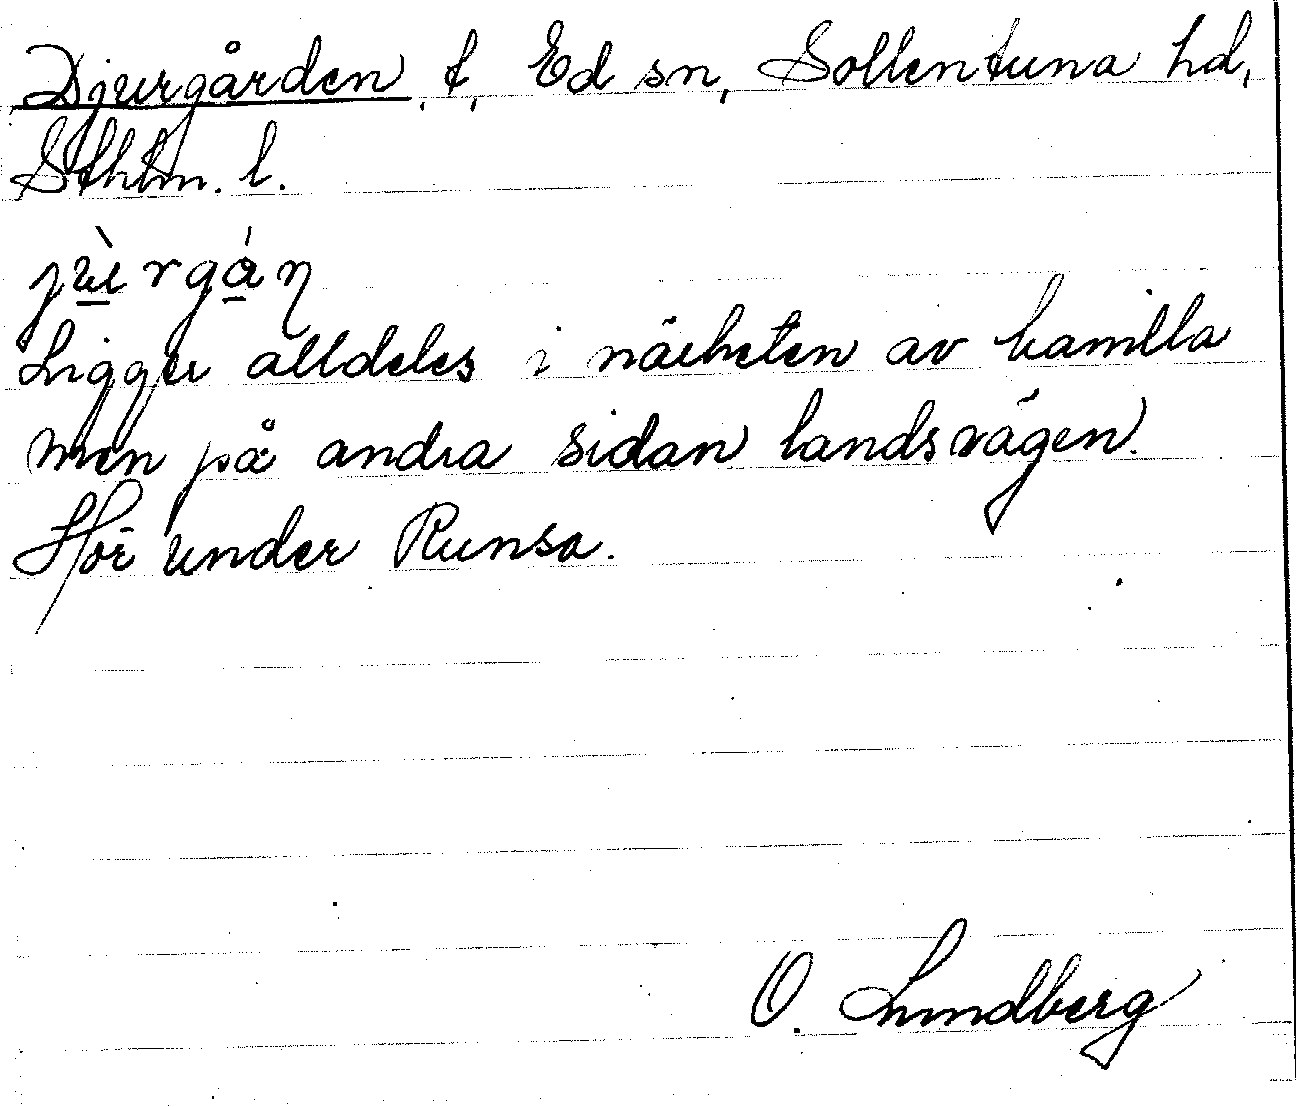 Djurgården, t, Ed sn, Sollentuna hd,
Sthlm. l.
jùrgán
Ligger alldeles i närheten av kamilla
men på andra sidan landsvägen.
Hör under Runsa.
O. Lundberg